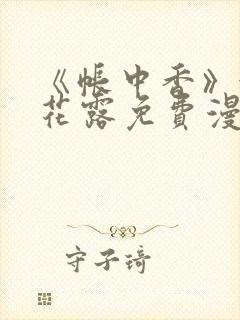 《帐中香》
花露免费漫
守子琦